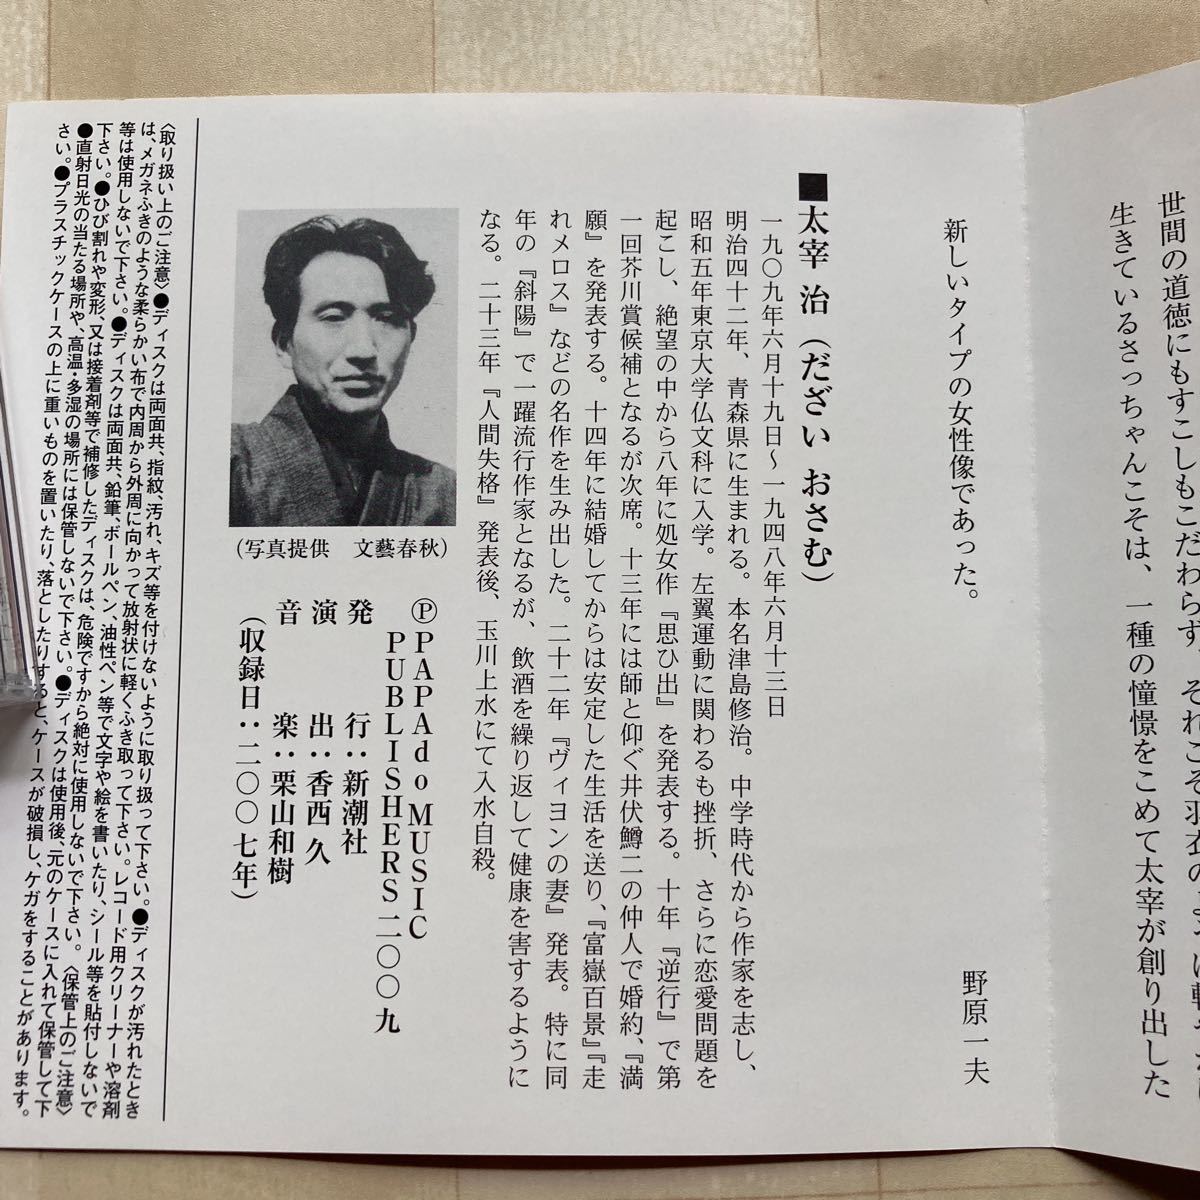 世間の道徳にもすこしもこだわらず、それこそ羽衣の
生きているさっちゃんこそは、一種の憧憬をこめて太宰が創り出した
新しいタイプの女性像であった。
野原一夫
■太宰 治（だざい おさむ）
一九〇九年六月十九日～一九四八年六月十三日
明治四十二年、青森県に生まれる。本名津島修治。中学時代から作家を志し、
昭和五年東京大学仏文科に入学。左翼運動に関わるも挫折、さらに恋愛問題を
起こし、絶望の中から八年に処女作『思ひ出』を発表する。十年『逆行』で第
一回芥川賞候補となるが次席。十三年には師と仰ぐ井伏鱒二の仲人で婚約、『満
願』を発表する。十四年に結婚してからは安定した生活を送り、『富嶽百景』『走
れメロス』などの名作を生み出した。二十二年『ヴィヨンの妻』発表。特に同
年の『斜陽』で一躍流行作家となるが、飲酒を繰り返して健康を害するように
なる。二十三年『人間失格』発表後、玉川上水にて入水自殺。
（写真提供　文藝春秋）
ⓅPAPAdo MUSIC
PUBLISHERS二〇〇九
発　行：新潮社
演　出：香西 久
音　楽：栗山和樹
（収録日：二〇〇七年）
〈取り扱い上のご注意〉●ディスクは両面共、指紋、汚れ、キズ等を付けないように取り扱って下さい。●ディスクが汚れたとき
は、メガネふきのような柔らかい布で内周から外周に向かって放射状に軽くふき取って下さい。レコード用クリーナーや溶剤
等は使用しないで下さい。●ディスクは両面共、鉛筆、ボールペン、油性ペン等で文字や絵を書いたり、シール等を貼付しないで
下さい。●ひび割れや変形、又は接着剤等で補修したディスクは、危険ですから絶対に使用しないで下さい。〈保管上のご注意〉
●直射日光の当たる場所や、高温・多湿の場所には保管しないで下さい。●ディスクは使用後、元のケースに入れて保管して下
さい。●プラスチックケースの上に重いものを置いたり、落としたりすると、ケースが破損し、ケガをすることがあります。